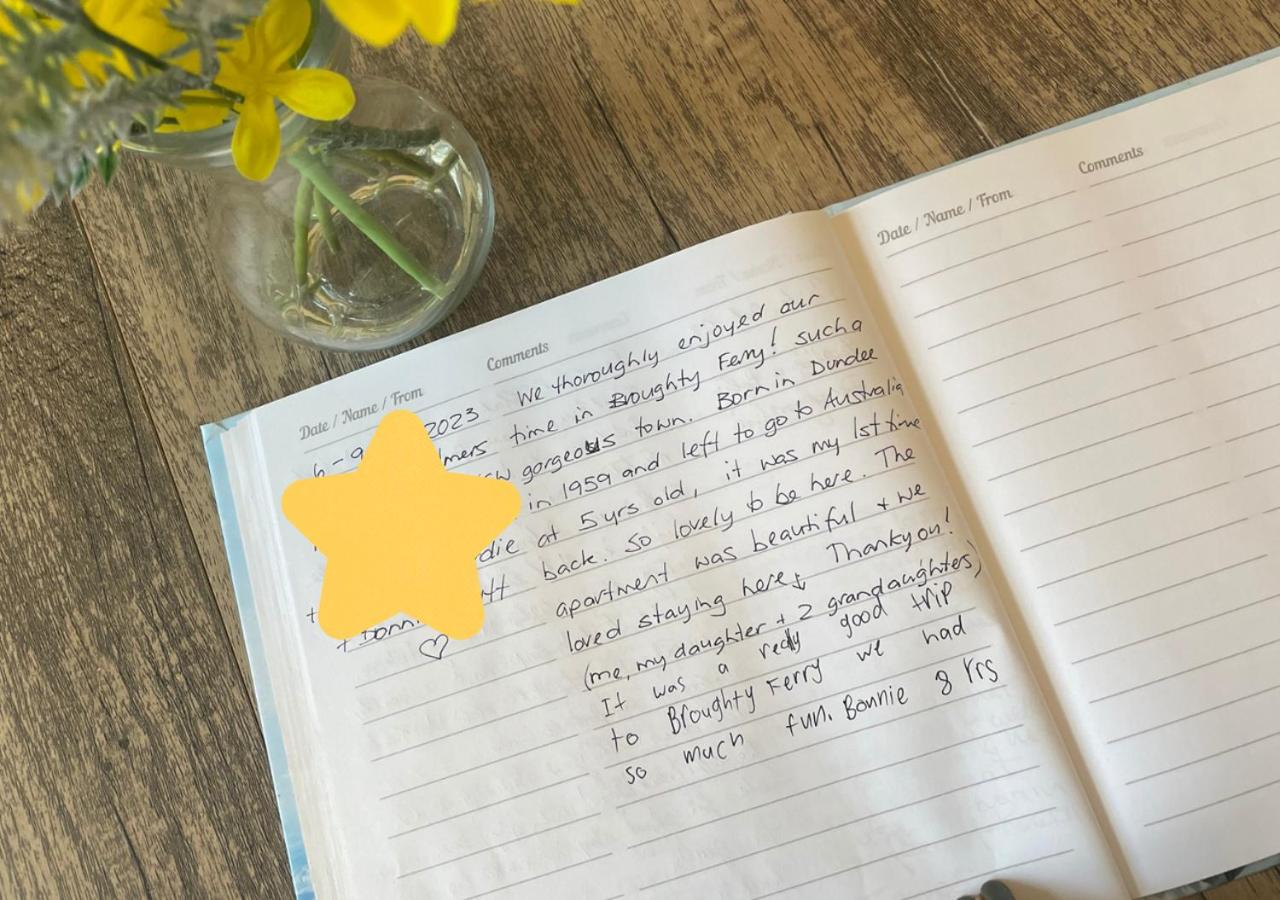 Date / Name / From
Comments
6-9
2023
We thoroughly enjoyed our
time in Broughty Ferry! such a
gorgeous town. Born in Dundee
in 1959 and left to go to Australia
at 5yrs old, it was my 1st time
back. So lovely to be here. The
apartment was beautiful + we
loved staying here, Thankyou!
(me, my daughter + 2 grandaughters)
It was a really good trip
to Broughty Ferry we had
so much fun. Bonnie 8 Yrs
Date / Name / From
Comments